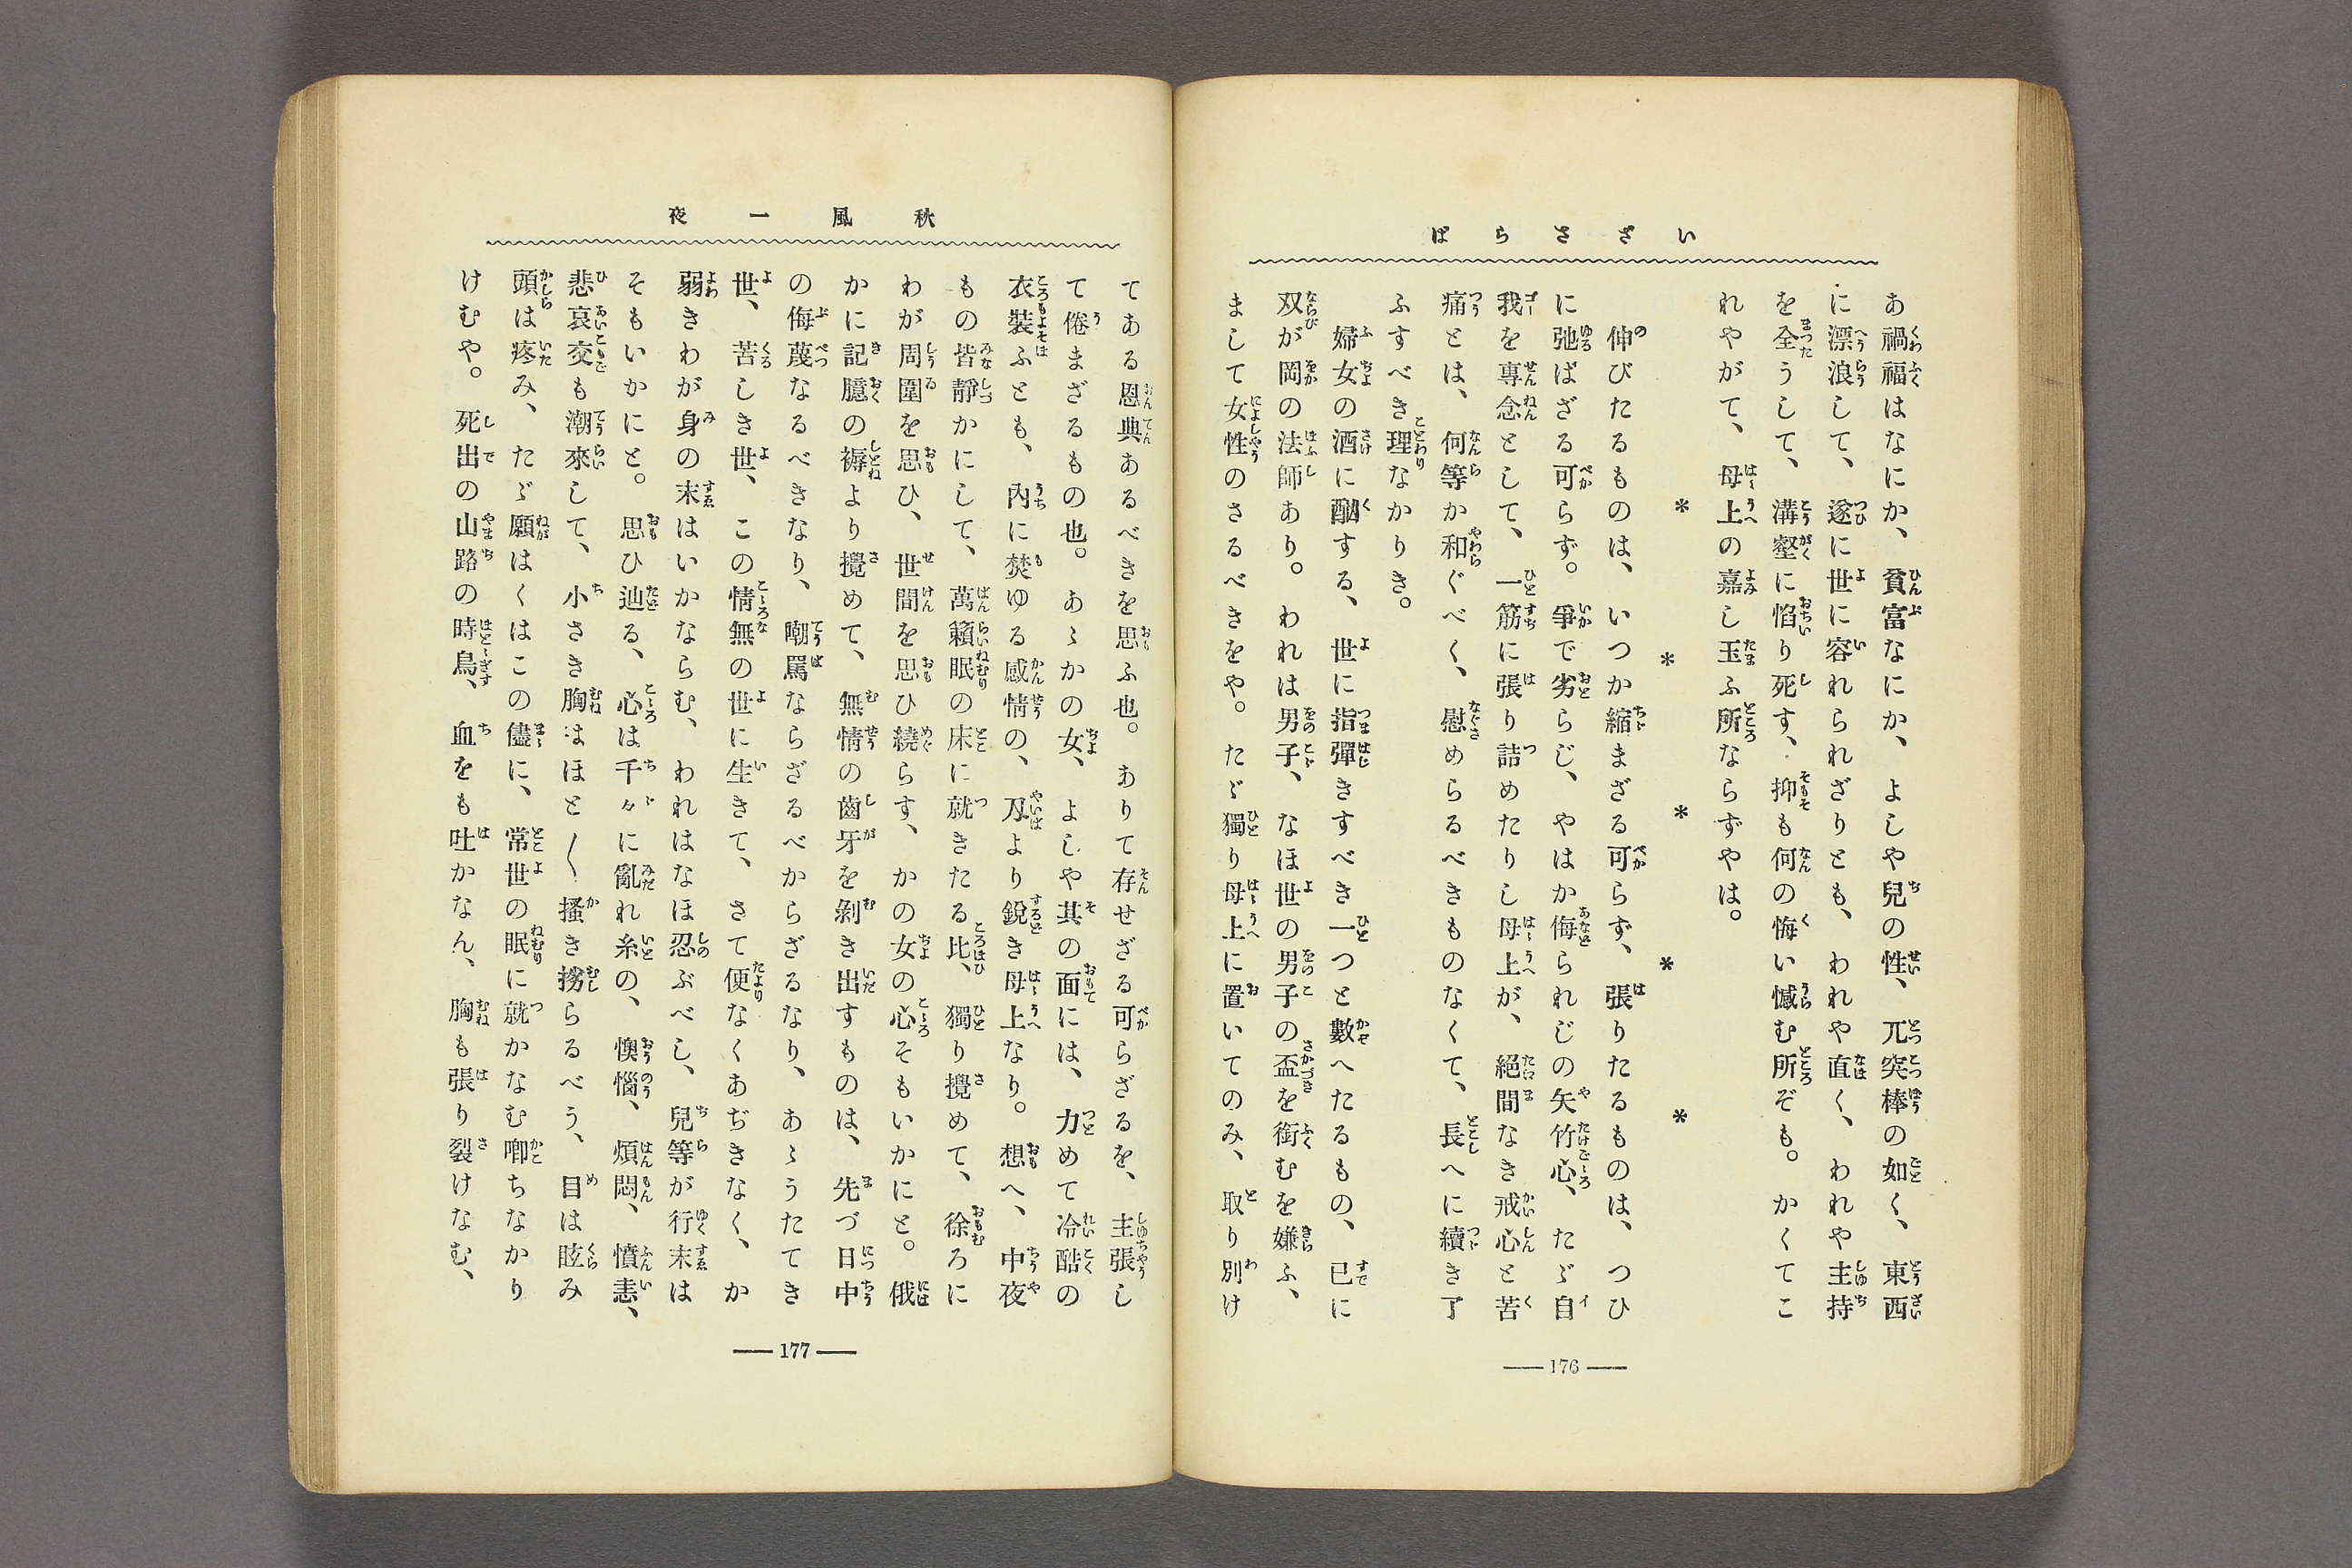 いざさらば
あ禍福はなにか、貧富なにか、よしや兒の性、兀突棒の如く、東西
に漂浪して、遂に世に容れられざりとも、われや直く、われや主持
を全うして、溝壑に惂り死す、抑も何の悔い憾む所ぞも。かくてこ
れやがて、母上の嘉し玉ふ所ならずやは。
＊　＊　＊　＊　＊
伸びたるものは、いつか縮まざる可らず、張りたるものは、つひ
に弛ばざる可らず。爭で劣らじ、やはか侮られじの矢竹心、たゞ自
我を專念として、一筋に張り詰めたりし母上が、絕間なき戒心と苦
痛とは、何等か和ぐべく、慰めらるべきものなくて、長へに續き了
ふすべき理なかりき。
婦女の酒に酗する、世に指彈きすべき一つと數へたるもの、已に
双が岡の法師あり。われは男子、なほ世の男子の盃を銜むを嫌ふ、
まして女性のさるべきをや。たゞ獨り母上に置いてのみ、取り別け
176
秋風一夜
てある恩典あるべきを思ふ也。ありて存せざる可らざるを、主張し
て倦まざるもの也。あゝかの女、よしや其の面には、力めて冷酷の
衣裝ふとも、內に焚ゆる感情の、刄より銳き母上なり。想へ、中夜
もの皆靜かにして、萬籟眠の床に就きたる比、獨り攪めて、徐ろに
わが周圍を思ひ、世間を思ひ繞らす、かの女の心そもいかにと。俄
かに記臆の褥より攪めて、無情の齒牙を剝き出すものは、先づ日中
の侮蔑なるべきなり、嘲罵ならざるべからざるなり、あゝうたてき
世、苦しき世、この情無の世に生きて、さて便なくあぢきなく、か
弱きわが身の末はいかならむ、われはなほ忍ぶべし、兒等が行末は
そもいかにと。思ひ辿る、心は千々に亂れ糸の、懊惱、煩悶、憤恚、
悲哀交も潮來して、小さき胸はほと〱搔き撈らるべう、目は眩み
頭は疼み、たゞ願はくはこの儘に、常世の眠に就かなむ喞ちなかり
けむや。死出の山路の時鳥、血をも吐かなん、胸も張り裂けなむ、
177